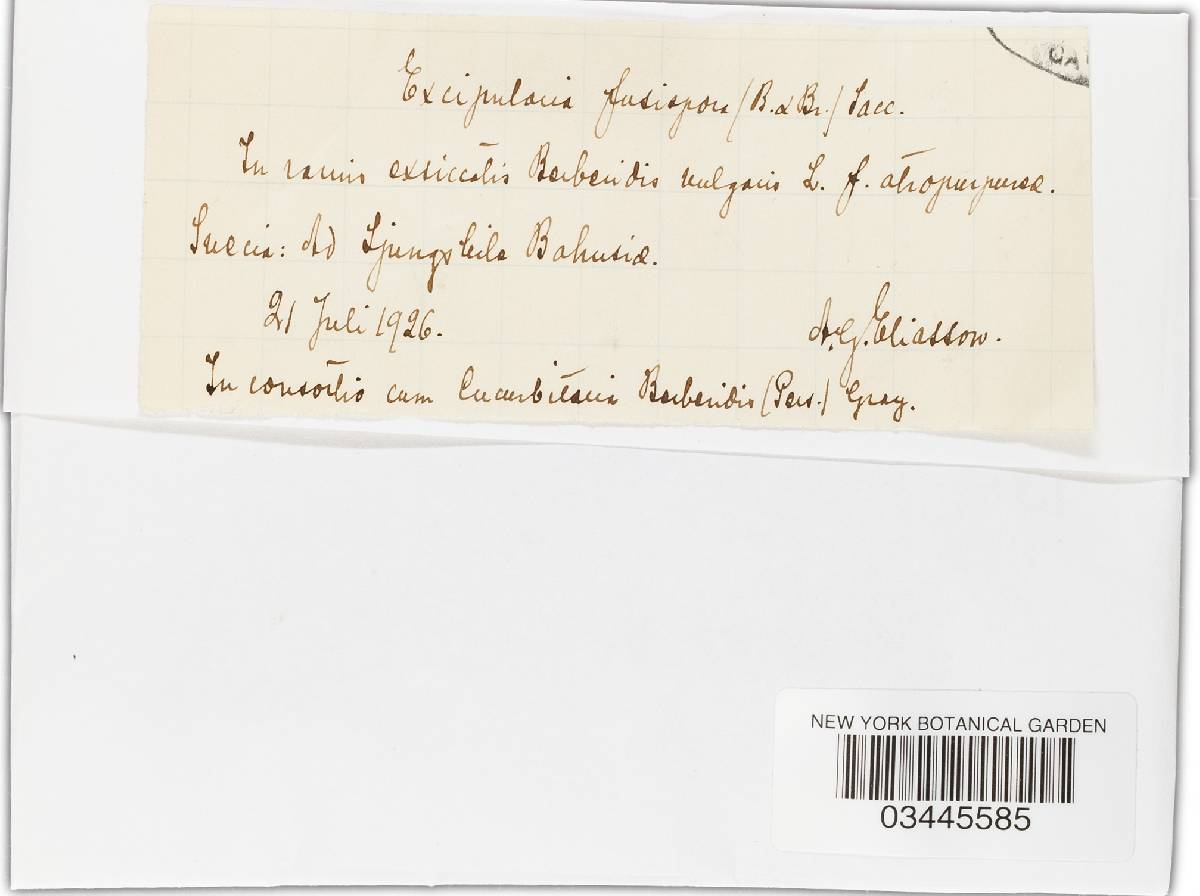 Excipularia fusispora (B. & Br.) Sacc.
In ramis exsiccatis Berberidis vulgaris L. f. atropurpureæ.
Suecia: Ad Ljungskile Bahusiæ.
21 Juli 1926.
A. G. Eliasson.
In consortio cum Cucurbitaria Berberidis (Pers.) Gray.
NEW YORK BOTANICAL GARDEN
03445585